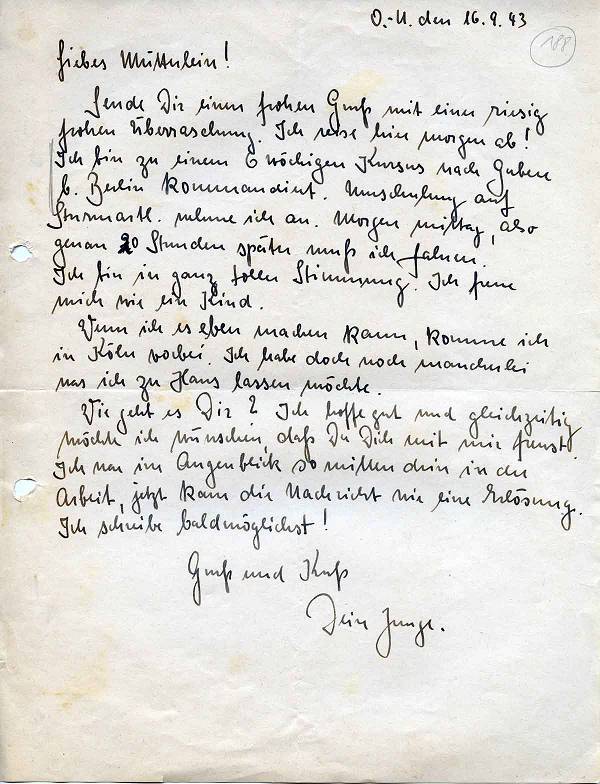 O.-U. den 16.9.43
188
Liebes Muttilein!
Sende Dir einen frohen Gruß mit einer riesig
frohen Überraschung. Ich reise hier morgen ab!
Ich bin zu einem 6 wöchigen Kursus nach Guben
b. Berlin kommandiert. Umschulung auf
Sturmartl. nehme ich an. Morgen mittag, also
genau 20 Stunden später muß ich fahren.
Ich bin in ganz toller Stimmung. Ich freue
mich wie ein Kind.
Wenn ich es eben machen kann, komme ich
in Köln vorbei. Ich habe doch noch mancherlei
was ich zu Haus lassen möchte.
Wie geht es Dir? Ich hoffe gut und gleichzeitig
möchte ich wünschen, daß Du Dich mit mir freust.
Ich war im Augenblick so mitten drin in der
Arbeit, jetzt kam die Nachricht wie eine Erlösung.
Ich schreibe baldmöglichst!
Gruß und Kuß
Dein Junge.